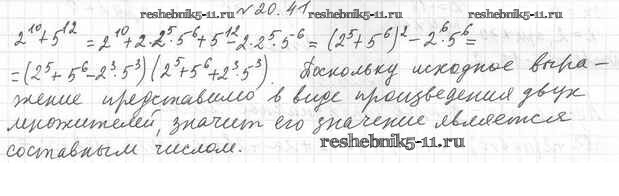 reshebnik5-11.ru
№20.41
2¹⁰+5¹² = 2¹⁰+2·2⁵·5⁶+5¹²-2·2⁵·5⁶ = (2⁵+5⁶)²-2⁶·5⁶=
=(2⁵+5⁶-2³·5³)(2⁵+5⁶+2³·5³). Поскольку исходное выра-
жение представимо в виде произведения двух
множителей, значит его значение является
составным числом.
reshebnik5-11.ru